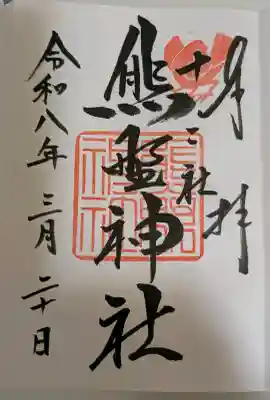 奉拝
十二社
熊野神社
令和八年 三月 二十日